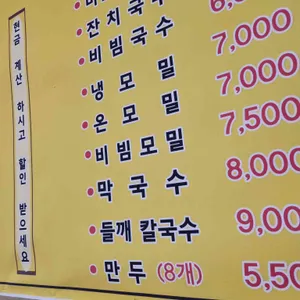 현금 계산 하시고 할인 받으세요
잔치국수
비빔국수
냉모밀 7,000
온모밀 7,000
비빔모밀 7,500
막국수 8,000
들깨 칼국수 9,00
만두 (8개) 5,50